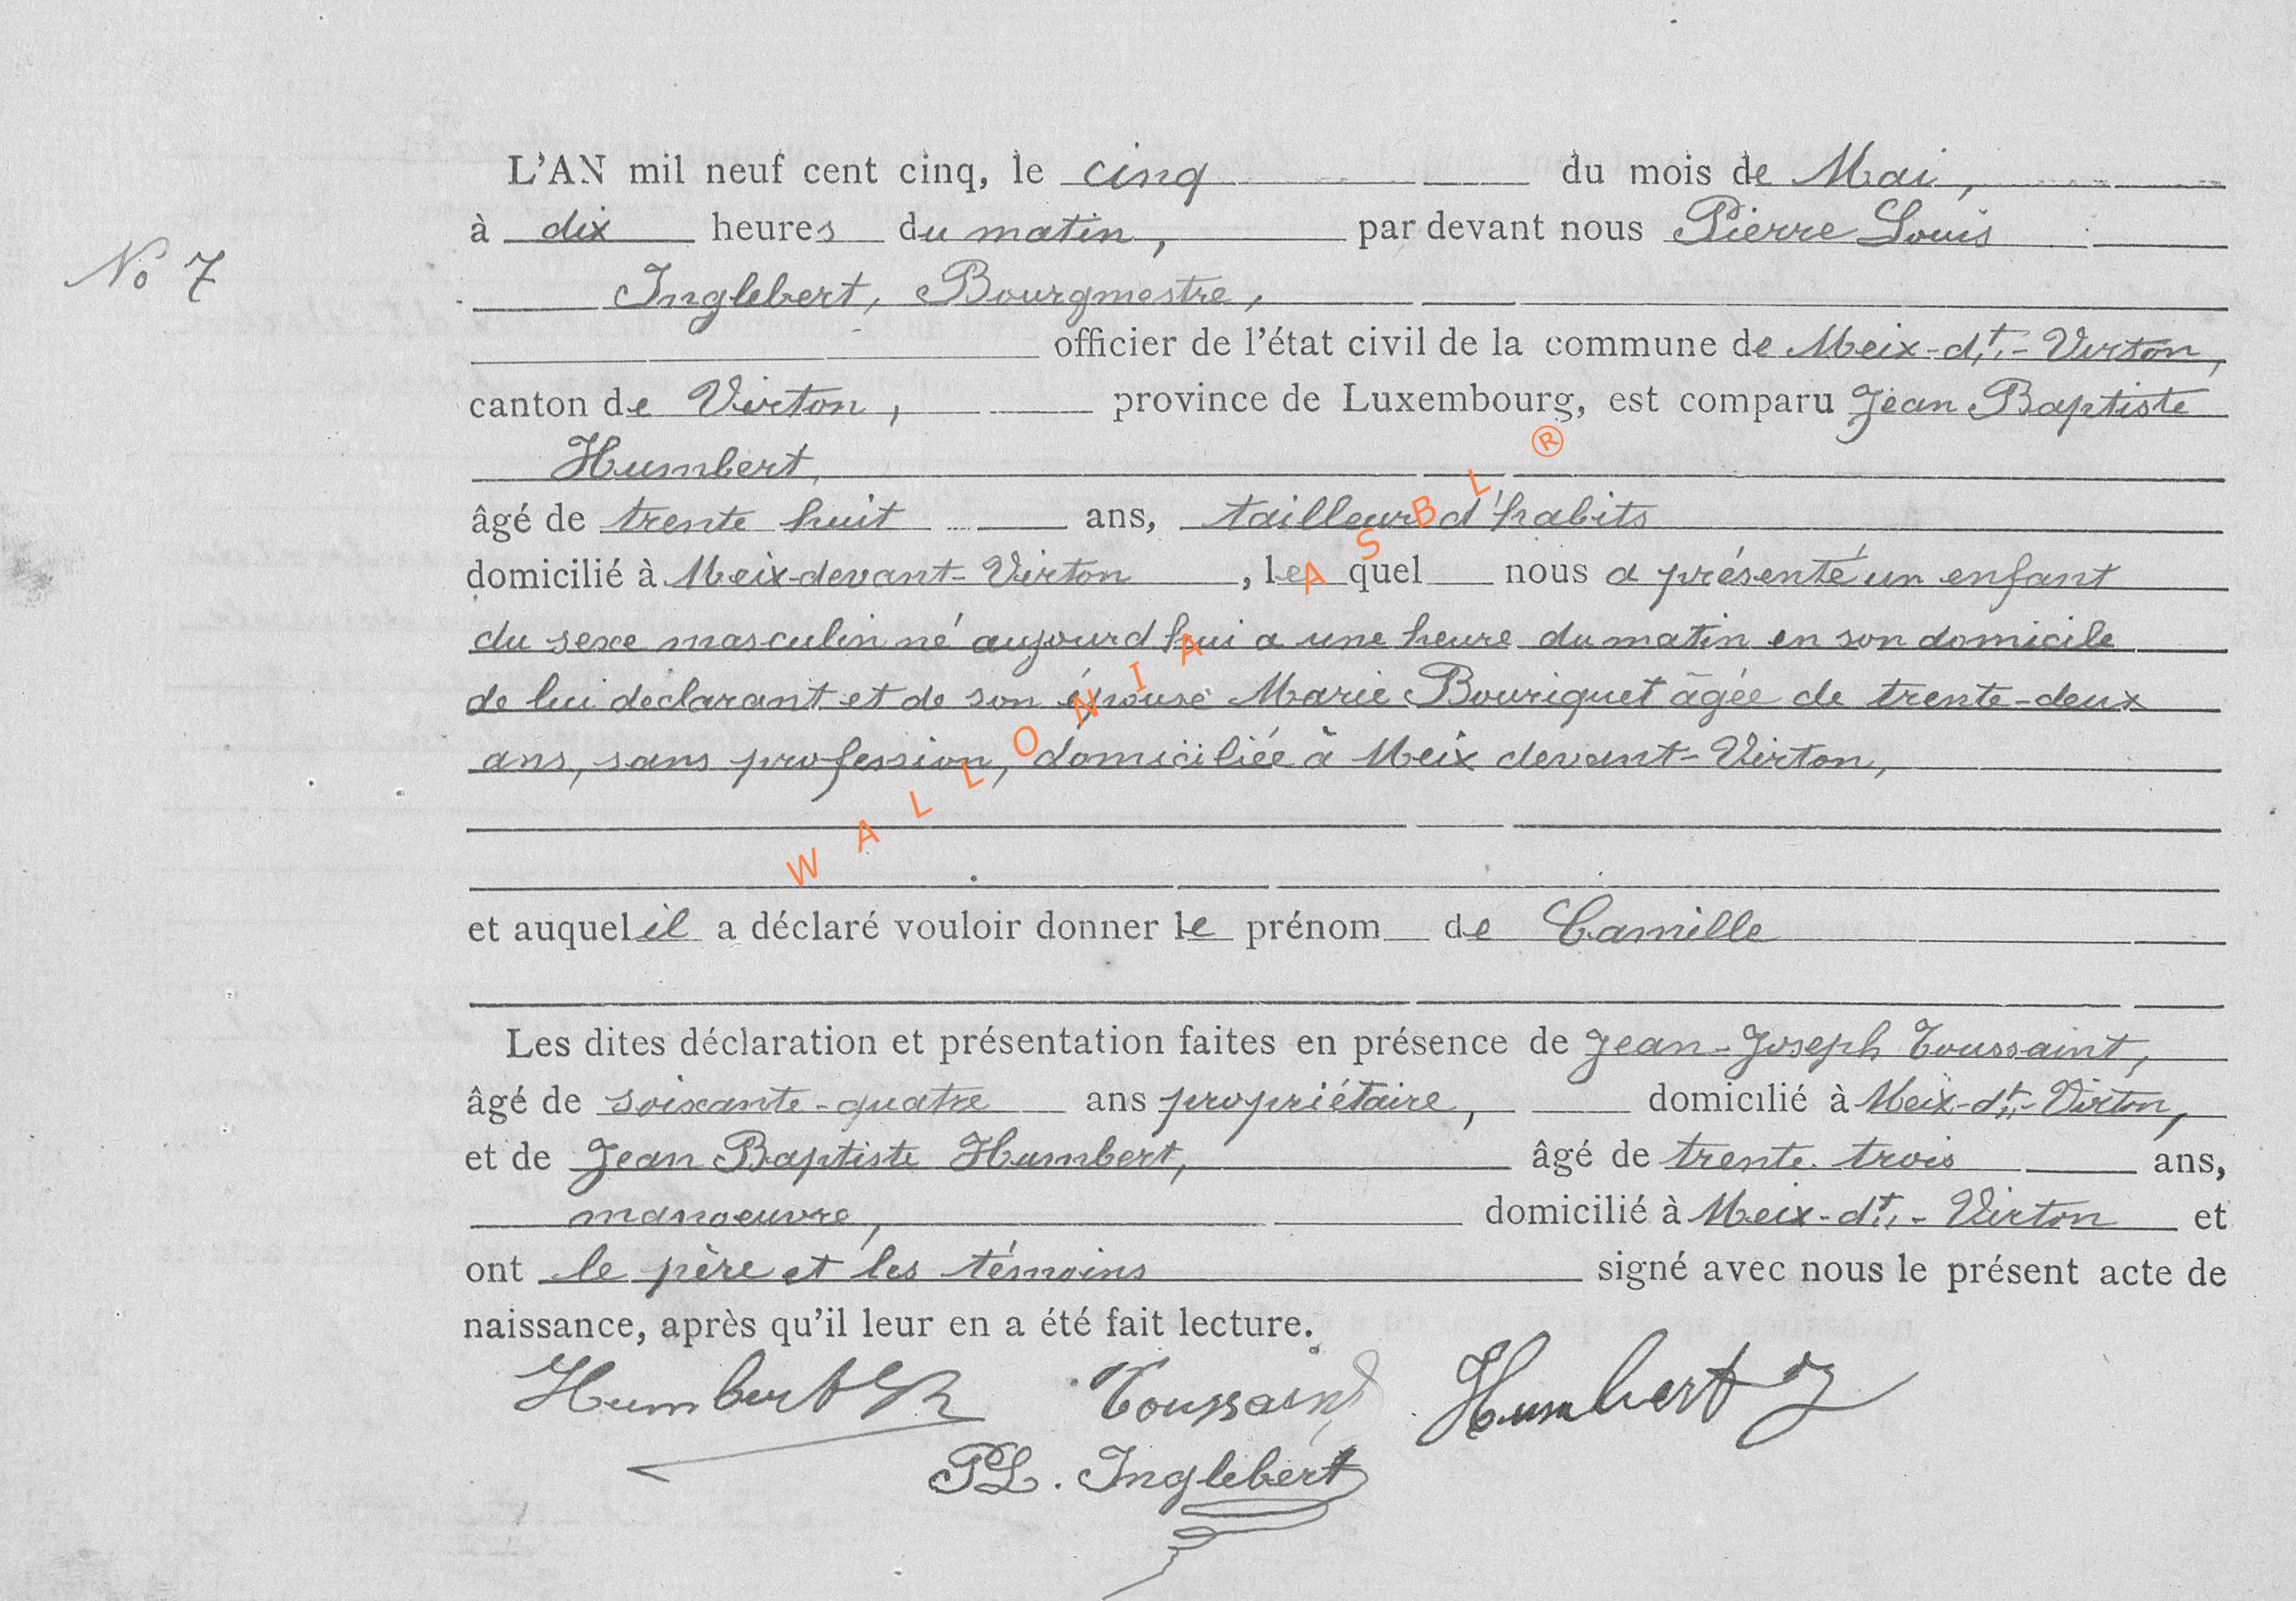 L'AN mil neuf cent cinq, le cinq du mois de Mai,
à dix heures du matin, par devant nous Pierre Louis
No 7
Inglebert, Bourgmestre,
officier de l'état civil de la commune de Meix-dt.-Virton,
canton de Virton, province de Luxembourg, est comparu Jean Baptiste
Humbert,
âgé de trente huit ans, tailleur d'habits
domicilié à Meix-devant-Virton, lequel nous a présenté un enfant
du sexe masculin né aujourd'hui a une heure du matin en son domicile
de lui declarant et de son épouse Marie Bouriquet âgée de trente-deux
ans, sans profession, domiciliée à Meix devant-Virton,
et auquel il a déclaré vouloir donner le prénom de Camille
Les dites déclaration et présentation faites en présence de Jean-Joseph Toussaint,
âgé de soixante-quatre ans propriétaire, domicilié à Meix-dt.-Virton,
et de Jean Baptiste Humbert, âgé de trente trois ans,
manoeuvre, domicilié à Meix-dt.-Virton et
ont le père et les témoins signé avec nous le présent acte de
naissance, après qu'il leur en a été fait lecture.
Humbert Toussaint Humbert J
PL. Inglebert
WALLONIA ASBL ®